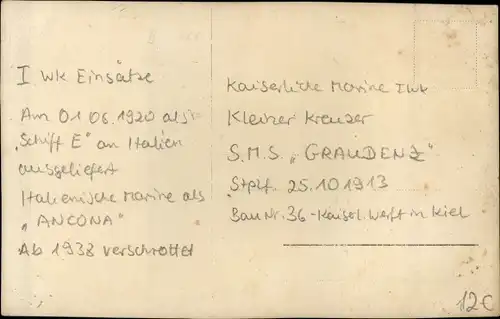 I WK Einsätze
Am 01 06.1920 als
"Schiff E" an Italien
ausgeliefert
Italienische Marine als
"ANCONA"
Ab 1938 verschrottet
Kaiserliche Marine I WK
Kleiner Kreuzer
S.M.S. "GRAUDENZ"
Stplf. 25.10 1913
Bau Nr. 36 - Kaiserl. Werft in Kiel
12€